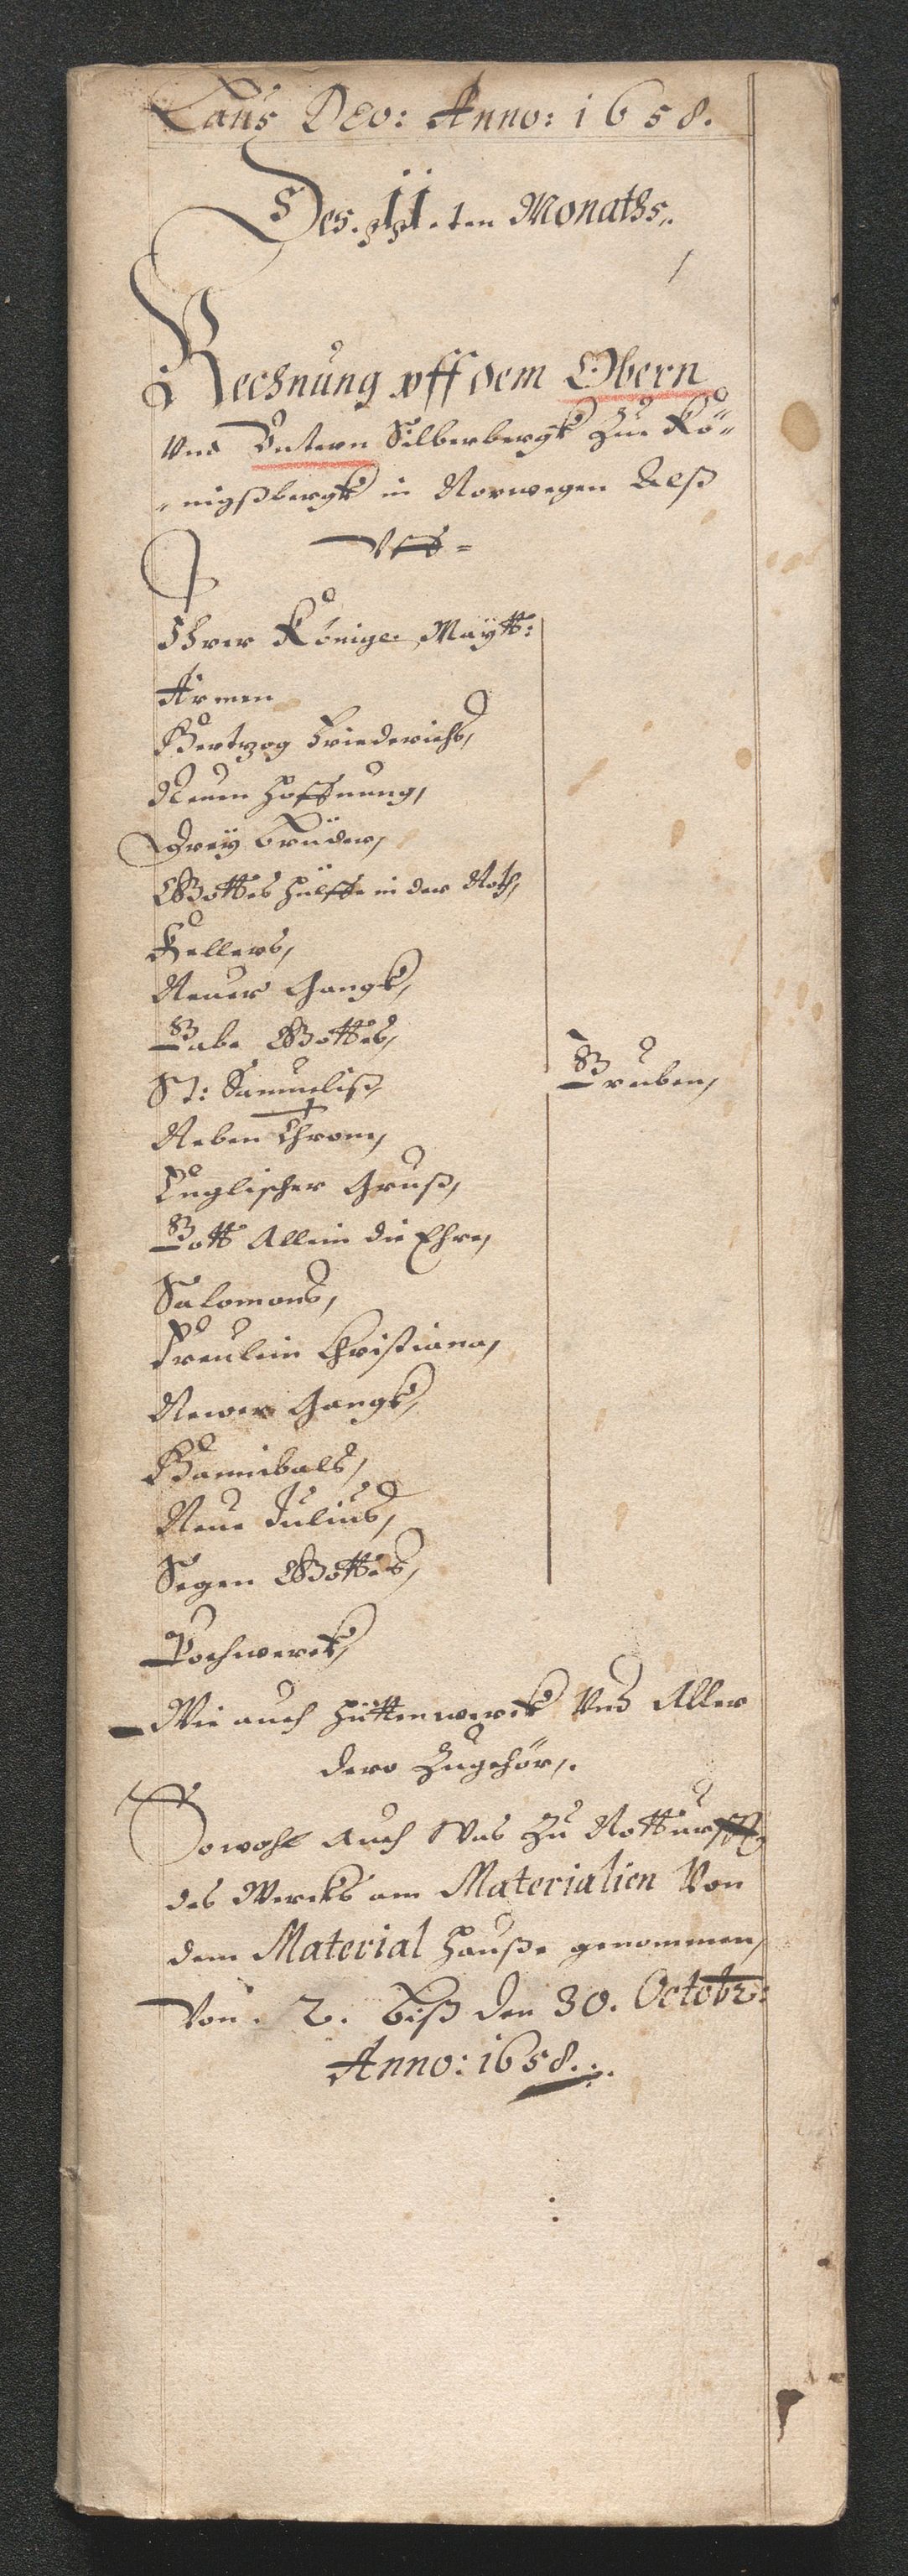 Laus Deo: Anno: 1658.
Des. 11. ten Monaths,.
Rechnung vff dem Obern
Vnd Vntern Silberbergk Zue Kö-
nigßbergk in Norwegen Alß
Vff =
Ihrer Königl. Maÿtt:
Armen
Hertzog Friederichs,
Neuen Hoffnung,
Dreÿ Brüder,
Gottes Hülffe in der Noth,
Kellers,
Neuer Gangk,
Gabe Gottes,
St: Samueliß,
Gruben,
Neben Thron,
Englischer Gruß,
Gott Allein die Ehre,
Salomons,
Freulein Christiana,
Newer Gangk,
Hannibals,
Neue Julius,
Segen Gottes,
Pochwerck,
Wie auch Hüttenwerck Vnd Aller
dero Zugehör,.
Sowohl Auch Was Zu Notturfft
des Wercks am Materialien Von
dem Material Hauße genommen,
Von. 2. biß den 30. Octobr:
Anno: 1658.